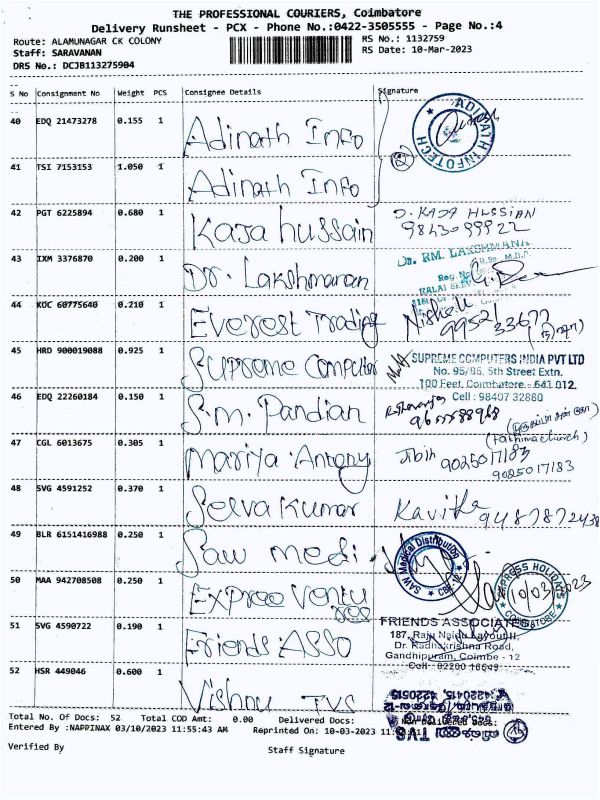 THE PROFESSIONAL COURIERS, Coimbatore
Delivery Runsheet - PCX - Phone No.:0422-3505555 - Page No.:4
Route: ALAMUNAGAR CK COLONY
RS No.: 1132759
Staff: SARAVANAN
RS Date: 10-Mar-2023
DRS No.: DCJB113275904
S No Consignment No Weight PCS Consignee Details Signature
40 EDQ 21473278 0.155 1 Adinath Info
ADINATH INFOTECH
41 TSI 7153153 1.050 1 Adinath Info
42 PGT 6225894 0.680 1 Kaja hussain
D. KAJA HUSSIAN
9843099922
43 IXM 3376870 0.200 1 Dr. Lakshmanan
Dr. RM. LAKSHMANA
44 KOC 60775640 0.210 1 Everest Trading
Nishali
9952133677
45 HRD 900019088 0.925 1 Supreme Computer
SUPREME COMPUTERS INDIA PVT LTD
No. 95/85, 5th Street Extn.
100 Feet, Coimbatore - 641 012.
Cell : 98407 32880
46 EDQ 22260184 0.150 1 S.M. Pandian
47 CGL 6013675 0.305 1 Mariya Antony
(Fathima church)
Jibih 9025017183
9025017183
48 SVG 4591252 0.370 1 Selva Kumar
Kavitha
9487872438
49 BLR 6151416988 0.250 1 Saw medi.
SAW Medical Distribution
CBE-12
50 MAA 942708508 0.250 1 Expree Ventu
res
EXPRESS HOLIDAYS
COIMBATORE
10/03/2023
51 SVG 4590722 0.190 1 Friends ASSO
FRIENDS ASSOCIATES
187, Raju Naidu Layout II,
Dr. Radhakrishna Road,
Gandhipuram, Coimbe - 12
52 HSR 449046 0.600 1 Vishnu TVS
Total No. Of Docs: 52 Total COD Amt: 0.00 Delivered Docs:
Entered By :NAPPINAX 03/10/2023 11:55:43 AM Reprinted On: 10-03-2023
TVS
Verified By
Staff Signature